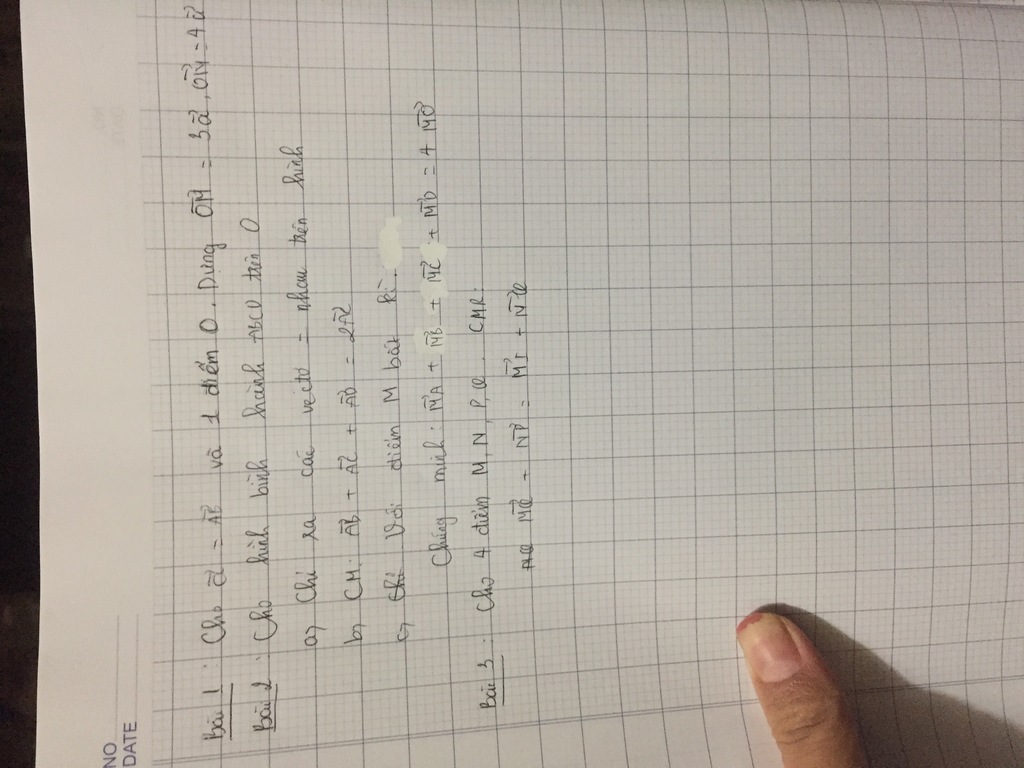 NO
DATE
Bài 1 : Cho a⃗ = AB⃗ và 1 điểm O. Dựng OM⃗ = 3a⃗, ON⃗ = 4a⃗
Bài 2 : Cho hình bình hành ABCD tâm O
a, Chỉ ra các vectơ = nhau trên hình
b, CM: AB⃗ + AC⃗ + AD⃗ = 2AC⃗
c, Với điểm M bất kì.
Chứng minh: MA⃗ + MB⃗ + MC⃗ + MD⃗ = 4 MO⃗
Bài 3 : Cho 4 điểm M, N, P, Q. CMR:
MQ⃗ + NP⃗ = MP⃗ + NQ⃗